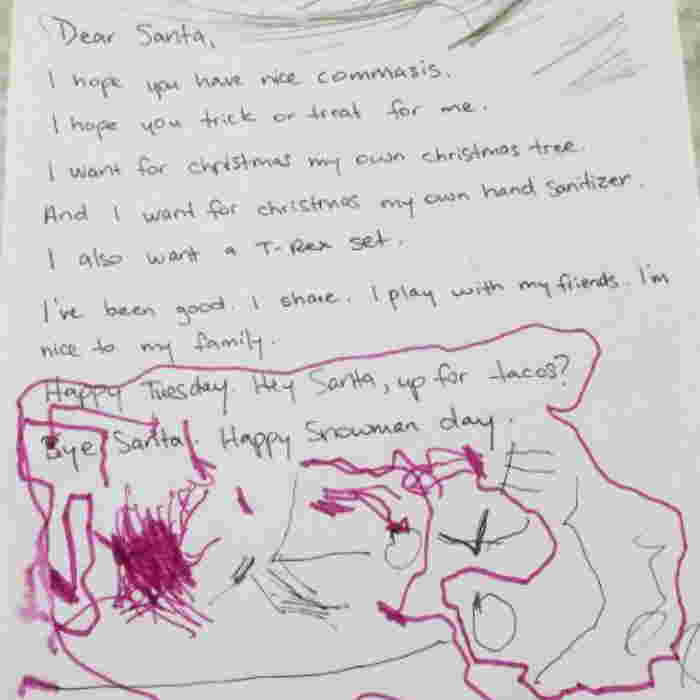 Dear Santa,
I hope you have nice commasis.
I hope you trick or treat for me.
I want for christmas my own christmas tree.
And I want for christmas my own hand sanitizer.
I also want a T-Rex set.
I've been good. I share. I play with my friends. I'm
nice to my family.
Happy Tuesday. Hey Santa, up for tacos?
Bye Santa. Happy Snowman day.